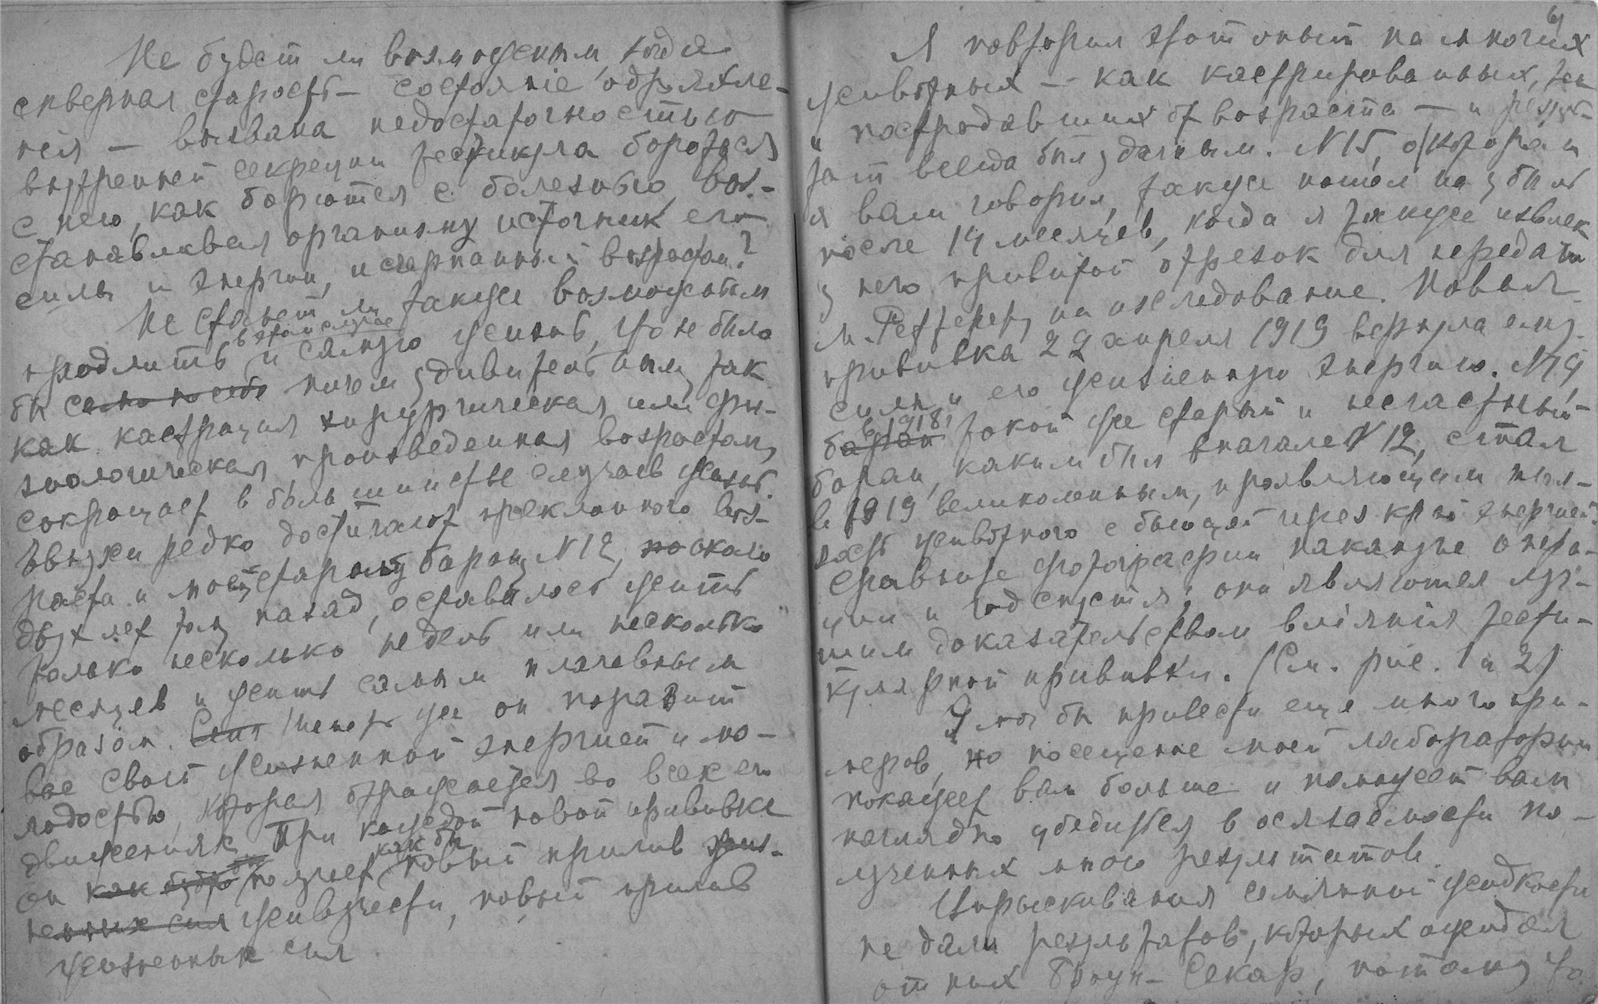 Не будет ли возможным, когда
скверная старость — состояніе одряхле-
ния — вызвана недостаточностью
внутренней секреции тестикула бороться
с нею, как борются с болезнью, вос-
станавливая организму источник его
силы и энергии, исчерпанный возрастом?
Не станет ли также возможным
в этом случае
продлить и самую жизнь, что не было
бы само по себе ничем удивительным, так
как кастрация хирургическая или фи-
зиологическая, произведенная возрастом,
сокращает в большинстве случаев жизнь.
Евнухи редко достигают преклонного воз-
раста и моему старому барану N 12, около
двух лет тому назад, оставалось жить
только несколько недель или несколько
месяцев и жить самым плачевным
образом. Теперь же он поражает
вас своей жизненной энергией и мо-
лодостью, которая отражается во всех его
движениях. При каждой новой прививке
как бы
он как будто получает новый прилив жиз-
ненных сил живучести, новый прилив
жизненных сил
6
Я повторил этот опыт на многих
животных — как кастрированных, так
и пострадавших от возраста — и резуль-
тат всегда был удачным. N 15, о котором
я вам говорил, также пошел на убыль
после 14 месяцев, когда я также извлек
у него привитой отрезок для передачи
м. Реттереру на исследование. Новая
прививка 29 апреля 1919 вернула ему
силы и его жизненную энергию. N 14
в 1918,
баран такой же старый и несчастный
баран, каким был вначале N 12, стал
в 1919 великолепным, проявляющим пол-
ность животного с бьющей через край энергией.
Сравните фотографии накануне опера-
ции и год спустя; они являются луч-
шим доказательством вліяния тести-
кулярной прививки. (См. рис. 1 и 2)
Я мог бы привести еще много при-
меров, но посещение моей лаборатории
покажет вам больше и поможет вам
наглядно убедиться в осязаемости по-
лученных мною результатов.
Впрыскивания семянной жидкости
не дали результатов, которых ожидал
от них Броун-Секар, потому что